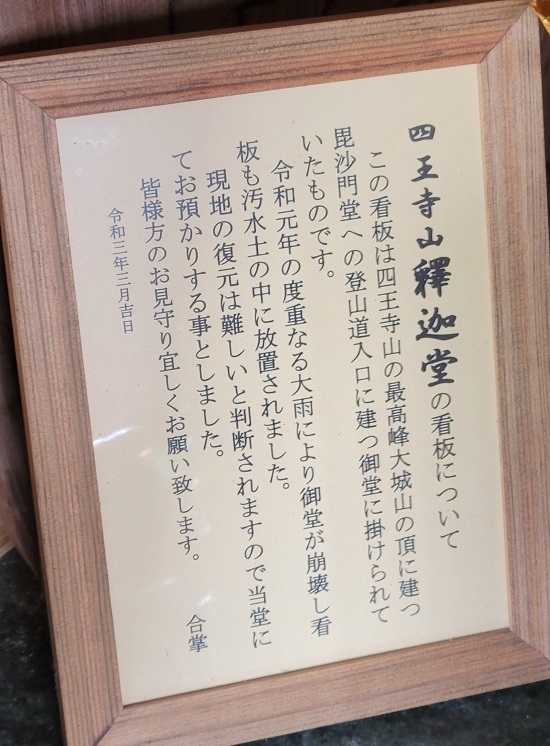 四王寺山釋迦堂の看板について
この看板は四王寺山の最高峰大城山の頂に建つ
毘沙門堂への登山道入口に建つ御堂に掛けられて
いたものです。
令和元年の度重なる大雨により御堂が崩壊し看
板も汚水土の中に放置されました。
現地の復元は難しいと判断されますので当堂に
てお預かりする事としました。
皆様方のお見守り宜しくお願い致します。
合掌
令和三年三月吉日